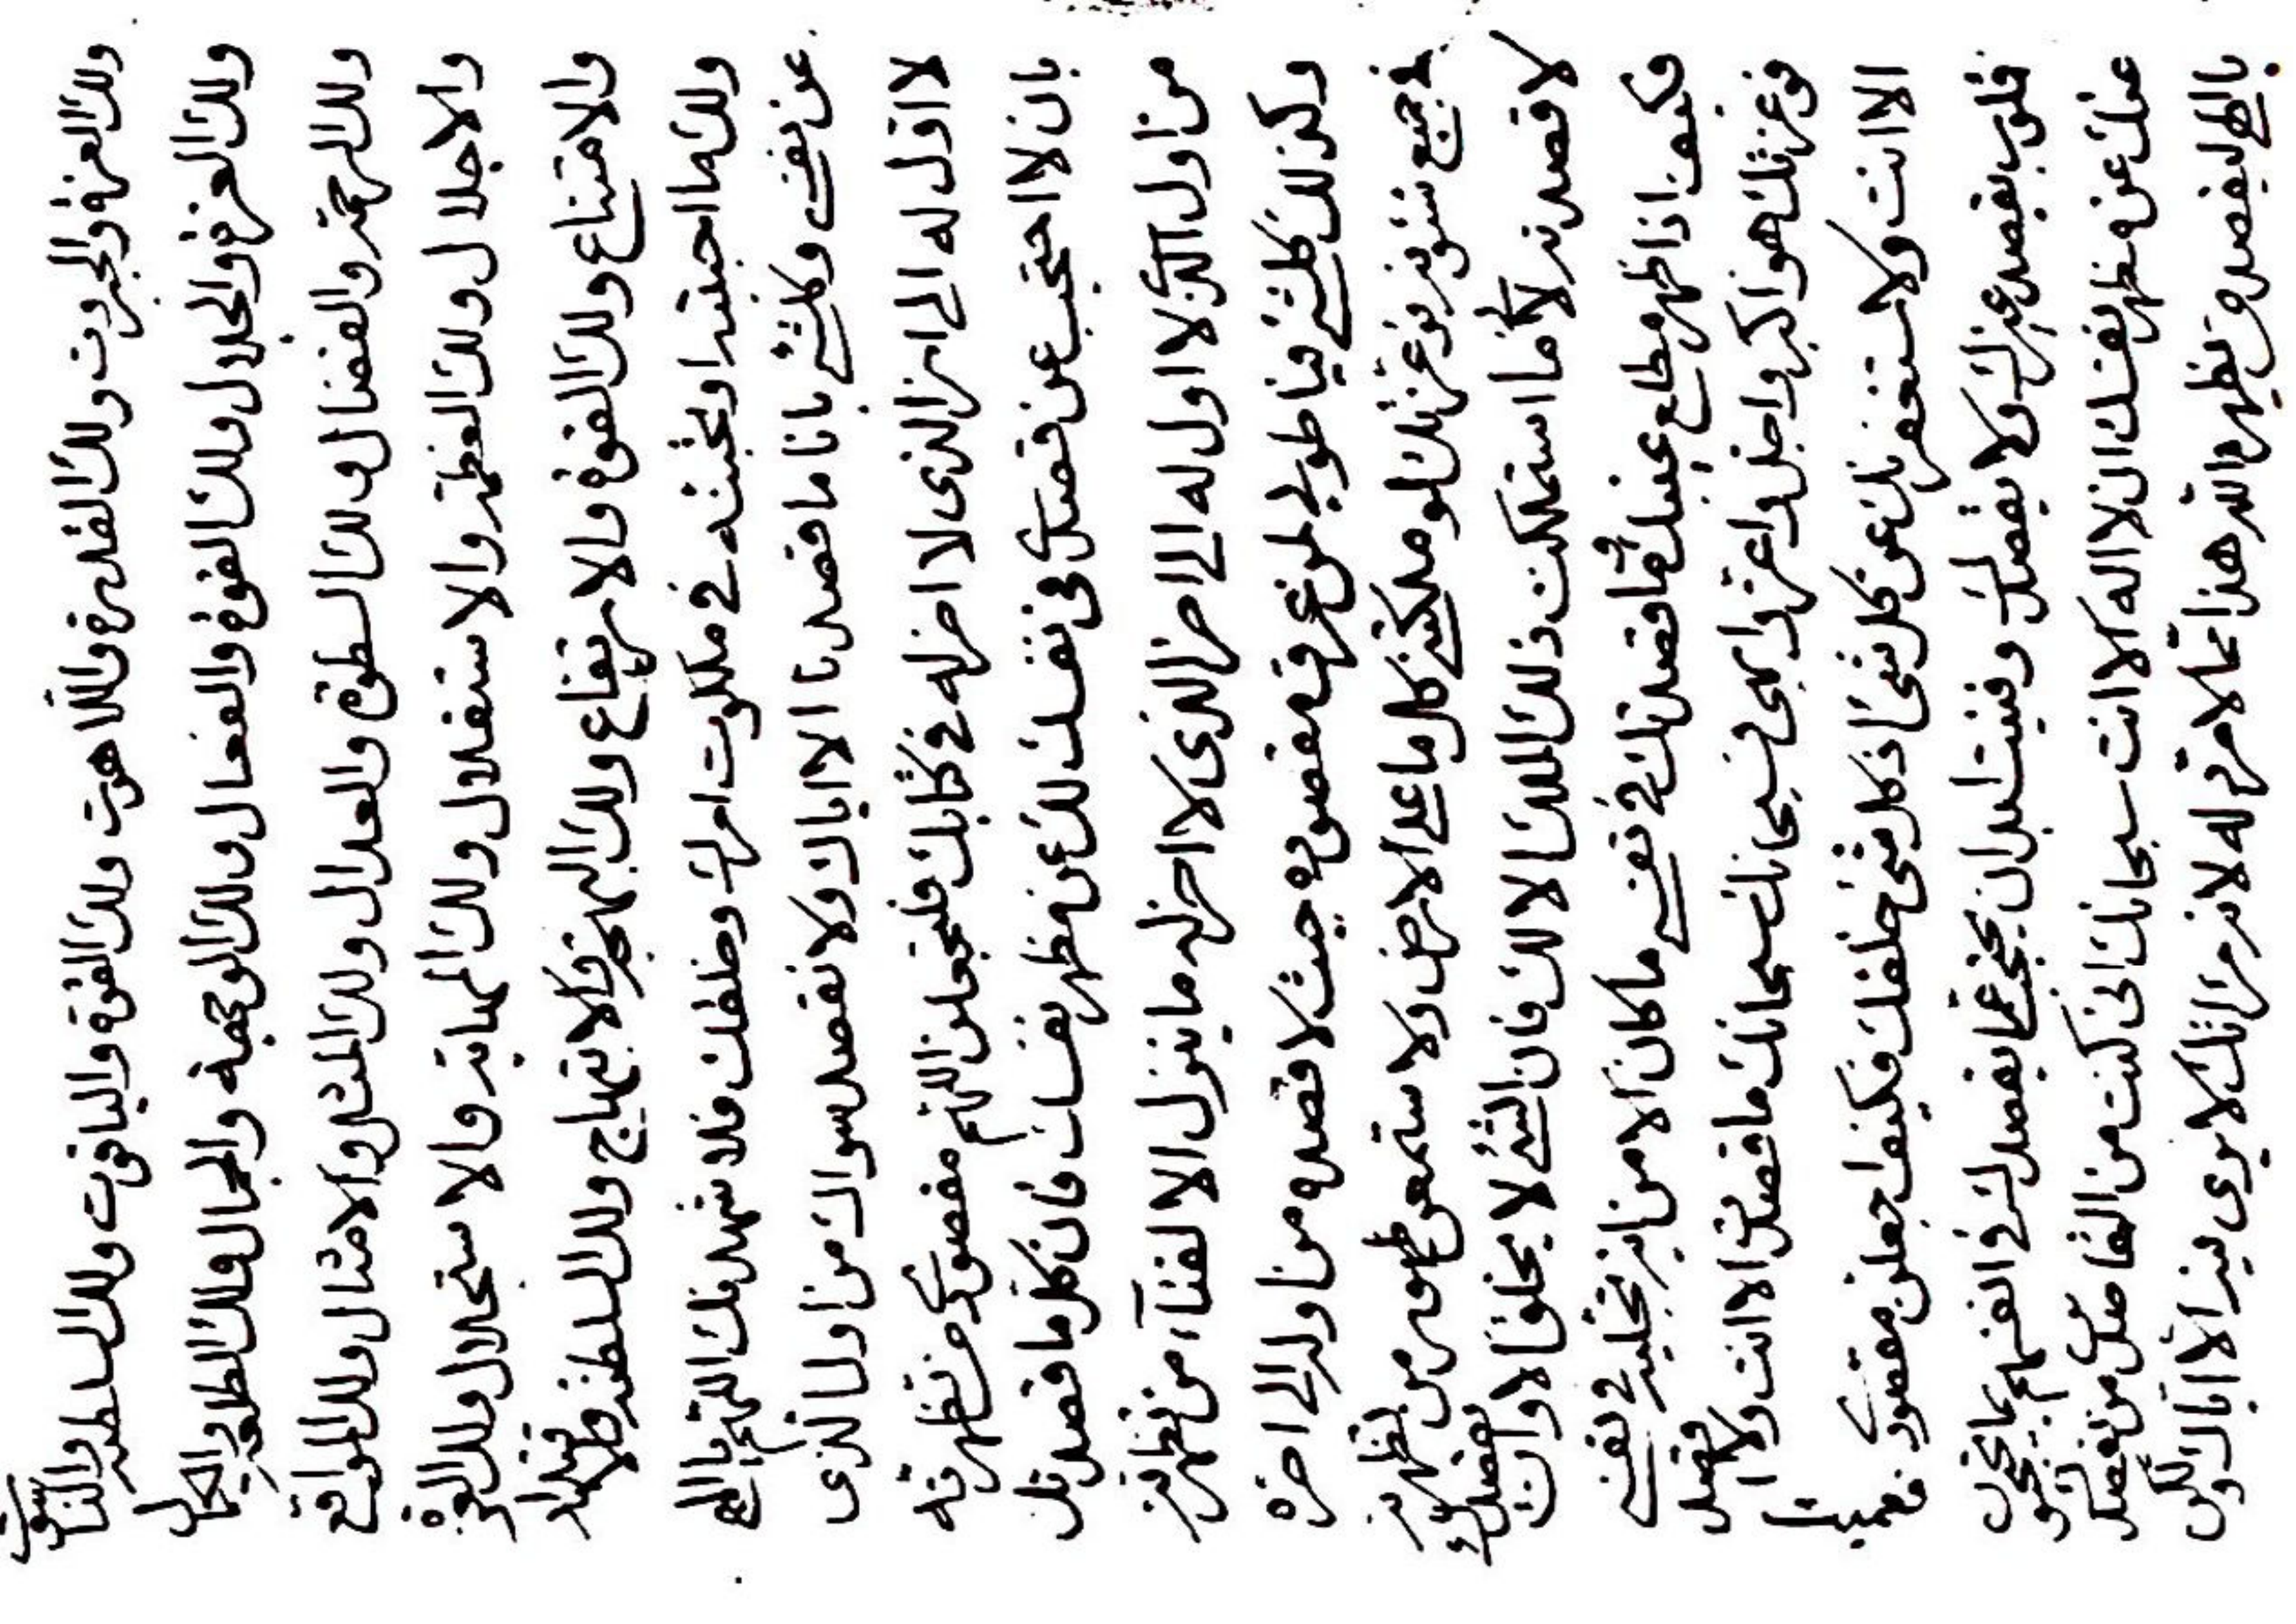 ولك العزة والجبروت ولك القدرة واللاهوت ولك القوة والياقوت ولك السلطنة والناسوت
ولك العزة والجلال ولك القوة والفعال ولك الوجهة والجمال ولك الطلعة والكمال
ولك الرحمة والفضال ولك السطوة والعدال ولك المثل والامثال ولك المواقع
والاجلال ولك العظمة والاستقلال ولك المهابة والاستجلال ولك العزة
والامتناع ولك القوة والارتفاع ولك البهجة والابتهاج ولك السلطنة والاقتدار
ولك ما احببته او تحبنه في ملكوت امرك وخلقك فلاشهدنك اللهم يا الهي
عن نفسي وكلشئ بانا ما قصدنا الا اياك ولا نقصد سواك من اول الذي
لا اول له الى اخر الذي لا اخر له في كتابك فلتجعلن اللهم مقصودي من تظهرنه
بان لا احتجب عن قصدي في نفسك لك عن مظهر نفسك فان كل ما قصدتك
من اول الذي لا اول له الى اخر الذي لا اخر له ما ينزل الا لقاء من تظهرنه
وكذلك كلشئ فيا طوبى لمن عرف مقصوده حيث لا قصده من اوله الى اخره
جميع شئونه فوعزتك لو ملكتني كل ما على الارض ولا ستمعن ظهور من تظهرنه
لا قصدنه لا ما استملكت ذلك الملك الا لك فان الشئ لا يخلق الا وان تقصدك
فكيف اذا ظهر مطلع غيبك فما قصدتك في نفسي ما كان الا من اية تجليك في نفسي
فوعزتك هو اكبر واجل واعز وابهى فسبحانك سبحانك ما قصدت الا انت ولا اقصد
الا انت ولاستغفرنك عن كل شئ اذ كل شئ خلقك فكيف اجعلن مقصودي
قلوب يقصد غيرك ولا يقصدك وفنيت ابدان يحتجب عما يقصدك في انفسهم بما يحتجبون
عنك عن مظهر نفسك ان لا اله الا انت سبحانك انى كنت من القاصدين
يا الهي ليقصدن من تظهره اذ هذا مما لا مرد له لانه مراتك لا يرى فيه الا اياك